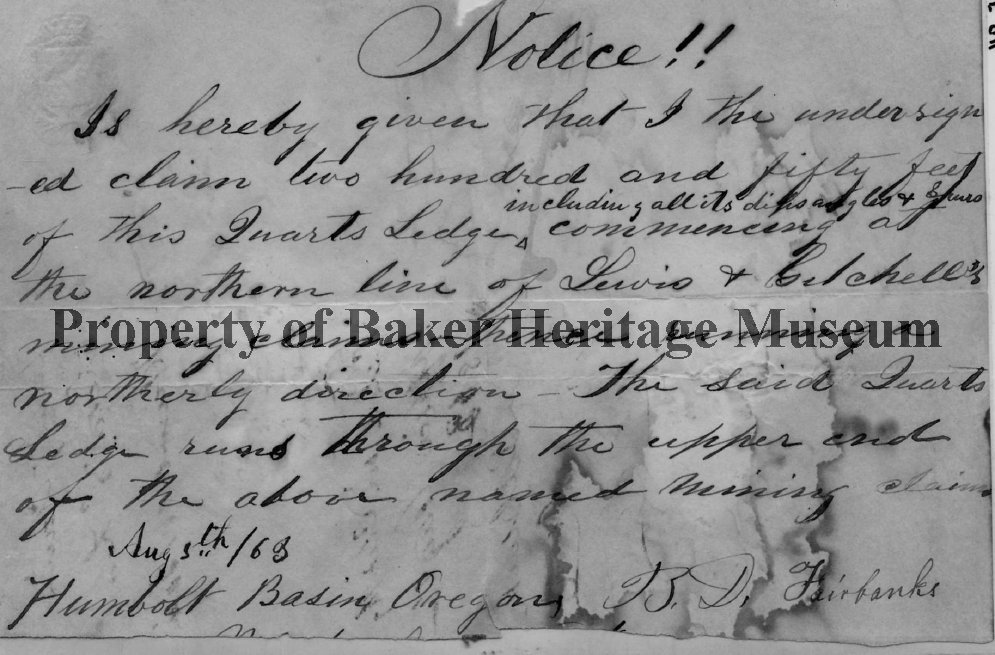 Notice!!
Is hereby given that I the undersign
-ed claim two hundred and fifty feet
including all its dips angles & Spurs
of this Quarts Ledge, commencing at
the northern line of Lewis & Getchell's
Property of Baker Heritage Museum
mining claim thence running a
northerly direction - The said Quarts
Ledge runs through the upper end
of the above named mining claim
Aug 5th /63
Humbolt Basin, Oregon, B. D. Fairbanks